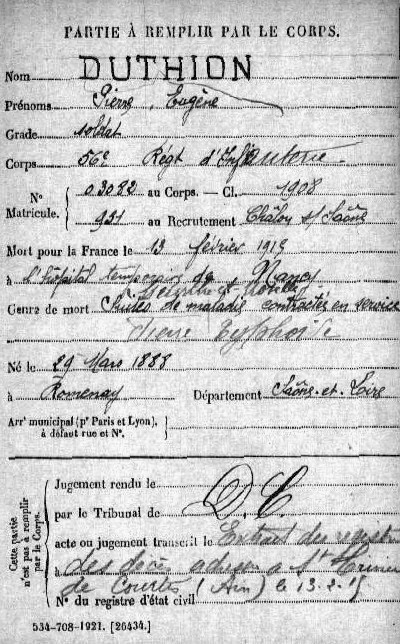 PARTIE À REMPLIR PAR LE CORPS.
Nom DUTHION
Prénoms Pierre, Eugène
Grade soldat
Corps 56e Régt d'Infanterie
N° Matricule. { 03082 au Corps. — Cl. 1908
931 au Recrutement Châlon s/ Saône
Mort pour la France le 13 février 1915
à l'hôpital temporaire de Nancy
Meurthe et Moselle
Genre de mort Suites de maladie contractée en service
fièvre typhoïde
Né le 29 Mars 1888
à Romenay Département Saône-et-Loire
Arrt municipal (pr Paris et Lyon), à défaut rue et N°.
Cette partie n'est pas à remplir par le Corps.
Jugement rendu le
par le Tribunal de D.C.
acte ou jugement transcrit le Extrait du registre
à des décès adressé à St
de Courtes (Ain) le 13.2.15
N° du registre d'état civil
534-708-1921. [26434.]